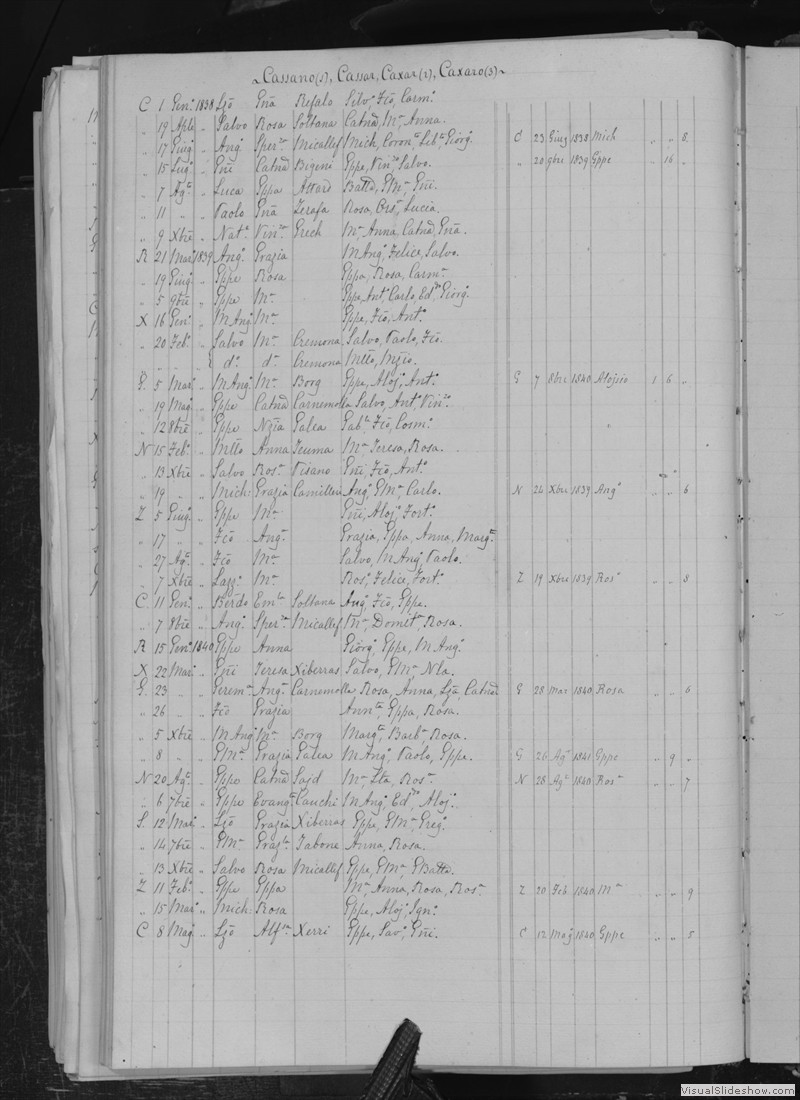 Cassano(5), Cassar, Caxar(1), Caxaro(3)
C 1 Genº 1838 Ljō Gña Refalo Silvº, Fčo, Carmº
„ 19 Aple „ Salvo Rosa Soltana Catnā, Mª, Anna.
„ 17 Giugº „ Angº Sperza Micallef Mich, Coronª, Libª, Giorgº. C 23 Giug 1838 Mich „ „ 8.
„ 15 Lugº „ Gñi Catnā Bigeni Gppe, Vinzº, Salvo. „ 20 9bre 1839 Gppe „ 16 „
„ 7 Agº „ Luca Gppa Attard Battā, GMª, Gñi.
„ 11 „ „ Paolo Gña Zerafa Rosa, Orsª, Lucia.
„ 9 Xbre „ Natª Vinza Grech Mª, Anna, Catnā, Gña.
R 21 Marº 1839 Angº Grazia M Angº, Felice, Salvo.
„ 19 Giugº „ Gppe Rosa Gppa, Rosa, Carmª
„ 5 9bre „ Gppe Mª Gppe, Antº, Carlo, Eddo, Giorgº.
X 16 Genº „ M Angº Mª Gppe, Fčo, Antº.
„ 20 Febº „ Salvo Mª Cremona Salvo, Paolo, Fčo.
„ „ „ „ dº dª Cremona Mttō, Nzio.
G. 5 Marº „ M Angº Mª Borg Gppe, Alojº, Antº. G 7 8bre 1840 Alojsio 1 6 „
„ 19 Magº „ Gppe Catnā Carnemolla Salvo, Antº, Vinzº
„ 12 8bre „ Gppe Nzia Galea Sabª, Fčo, Cosmº.
N 15 Febº „ Mttō Anna Teuma Mª, Teresa, Rosa.
„ 13 Xbre „ Salvo Rosª Pisano Gñi, Fčo, Antº.
„ 19 „ „ Mich Grazia Camilleri Angº, GMª, Carlo. N 24 Xbre 1839 Angº „ „ 6
Z 5 Giugº „ Gppe Mª Gñi, Alojº, Fortº.
„ 17 „ „ Fčo Angª Grazia, Gppa, Anna, Margª.
„ 27 Agº „ Fčo Mª Salvo, M Angº, Paolo.
„ 7 Xbre „ Lazzº Mª Rosº, Felice, Fortº. Z 19 Xbre 1839 Rosº „ „ 8
C. 11 Genº „ Berdo Emla Soltana Angº, Fčo, Gppe.
„ 7 8bre „ Angº Sperza Micallef Mª, Domitª, Rosa.
R 15 Genº 1840 Gppe Anna Giorgº, Gppe, M Angº.
X 22 Marº „ Gñi Teresa Xiberras Salvo, GMª, Nla.
G. 23 „ „ Geremª Angª Carnemolla Rosa, Anna, Ljā, Catnā G 28 Mar 1840 Rosa „ „ 6
„ 26 „ „ Fčo Grazia Annta, Gppa, Rosa.
„ 5 Xbre „ M Angº Mª Borg Margª, Barbª, Rosa.
„ 8 „ „ GMª Grazia Galea M Angº, Paolo, Gppe. G 26 Agº 1841 Gppe „ 9 „
N 20 Agº „ Gppe Catnā Sajd Mª, Lta, Rosª. N 28 Agº 1840 Rosª „ „ 7
„ 6 7bre „ Gppe Evangª Cauchi M Angº, Eddo, Alojº.
S. 12 Marº „ Ljō Grazia Xiberras Gppe, GMª, Gregº.
„ 14 7bre „ GMª Grazla Tabone Anna, Rosa.
„ 13 Xbre „ Salvo Rosa Micallef Gppe, GMª, GBattā.
Z 11 Febº „ Gppe Gppa Mª, Anna, Rosa, Rosª. Z 20 Feb 1840 Mª „ „ 9
„ 15 Marº „ Mich Rosa Gppe, Alojº, Ignº.
C 8 Mag „ Ljō Alfsa Xerri Gppe, Savº, Gñi. C 12 Magº 1840 Gppe „ „ 5
VisualSlideshow.com